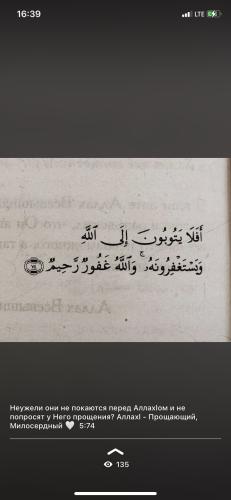 16:39
LTE
أَفَلَا يَتُوبُونَ إِلَى ٱللَّهِ
وَيَسْتَغْفِرُونَهُۥ ۚ وَٱللَّهُ غَفُورٌ رَّحِيمٌ ٧٤
Неужели они не покаются перед Аллахlом и не
попросят у Него прощения? Аллахl - Прощающий,
Милосердный 🤍 5:74
135